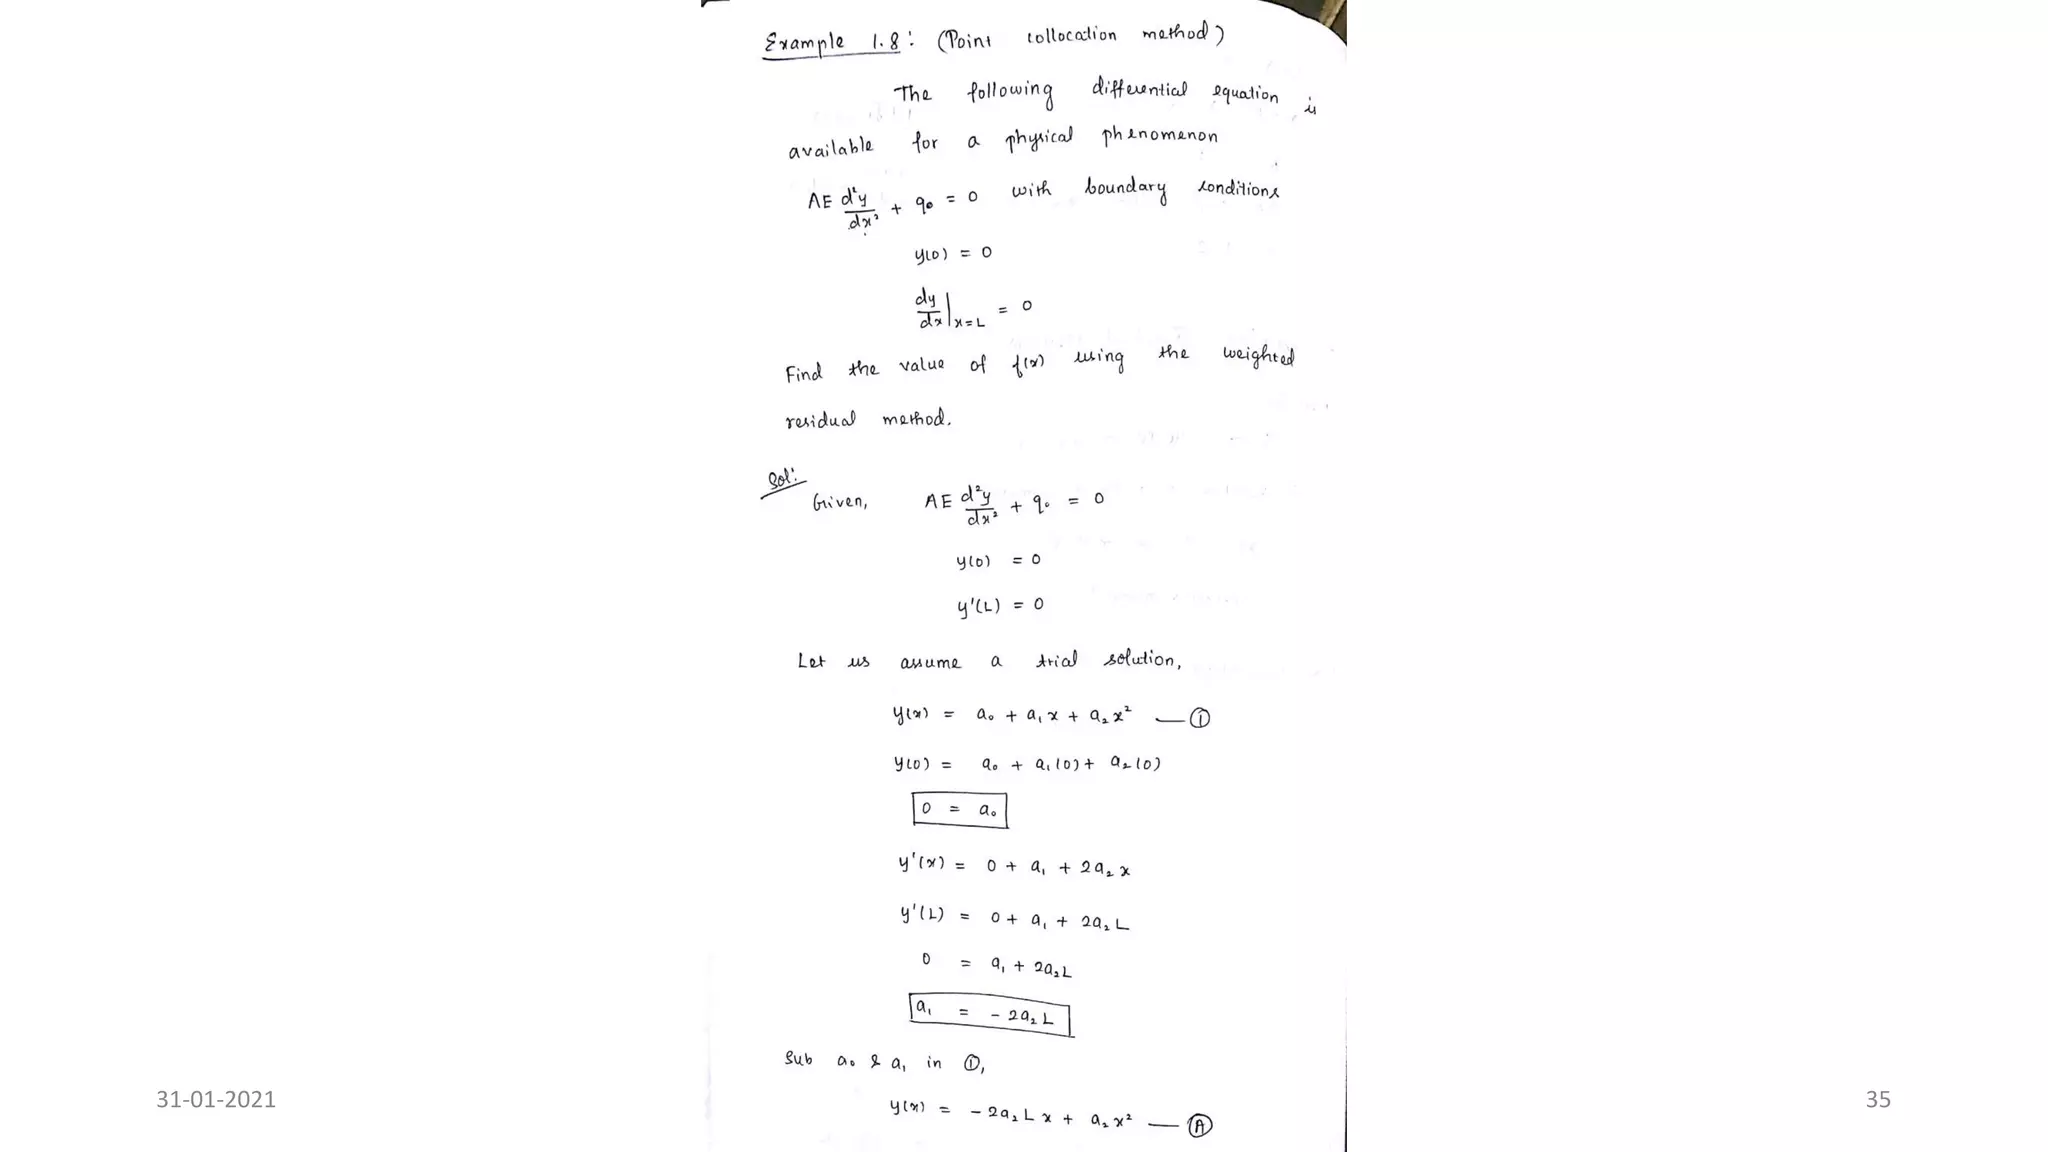 Example 1.8: (Point collocation method)
The following differential equation is
available for a physical phenomenon
AE d²y/dx² + q₀ = 0 with boundary conditions
y(0) = 0
dy/dx|x=L = 0
Find the value of f(x) using the weighted
residual method.
Sol:
Given, AE d²y/dx² + q₀ = 0
y(0) = 0
y'(L) = 0
Let us assume a trial solution,
y(x) = a₀ + a₁x + a₂x² — ①
y(0) = a₀ + a₁(0) + a₂(0)
0 = a₀
y'(x) = 0 + a₁ + 2a₂x
y'(L) = 0 + a₁ + 2a₂L
0 = a₁ + 2a₂L
a₁ = - 2a₂L
Sub a₀ & a₁ in ①,
y(x) = - 2a₂Lx + a₂x² — Ⓐ
31-01-2021
35